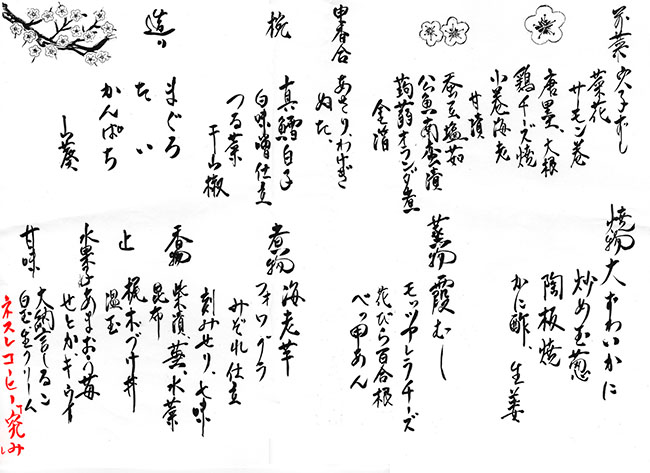 前菜 穴子すし
菜花
サーモン巻
唐墨、大根
鶏チーズ焼
小巻海老
甘漬
蚕豆塩茹
公魚南蛮漬
蒟蒻オランダ煮
金箔
申合 あさり、わけぎ
ぬた、
椀 真鱈白子
白味噌仕立
つる菜
干山椒
造り まぐろ
たい
かんぱち
山葵
焼物 大ずわいかに
炒め玉葱
陶板焼
かに酢、生姜
蒸物 霞むし
モッツァレラチーズ
花びら百合根
べっ甲あん
煮物 海老芋
フォワグラ
みぞれ仕立
刻みせり、七味
香物 柴漬、蕪、水菜
昆布
止 梶木づけ丼
温玉
水菓子 あまおう苺
せとか、キウイ
甘味 大納言しるこ
白玉生クリーム
ネスレコーヒー「究み」